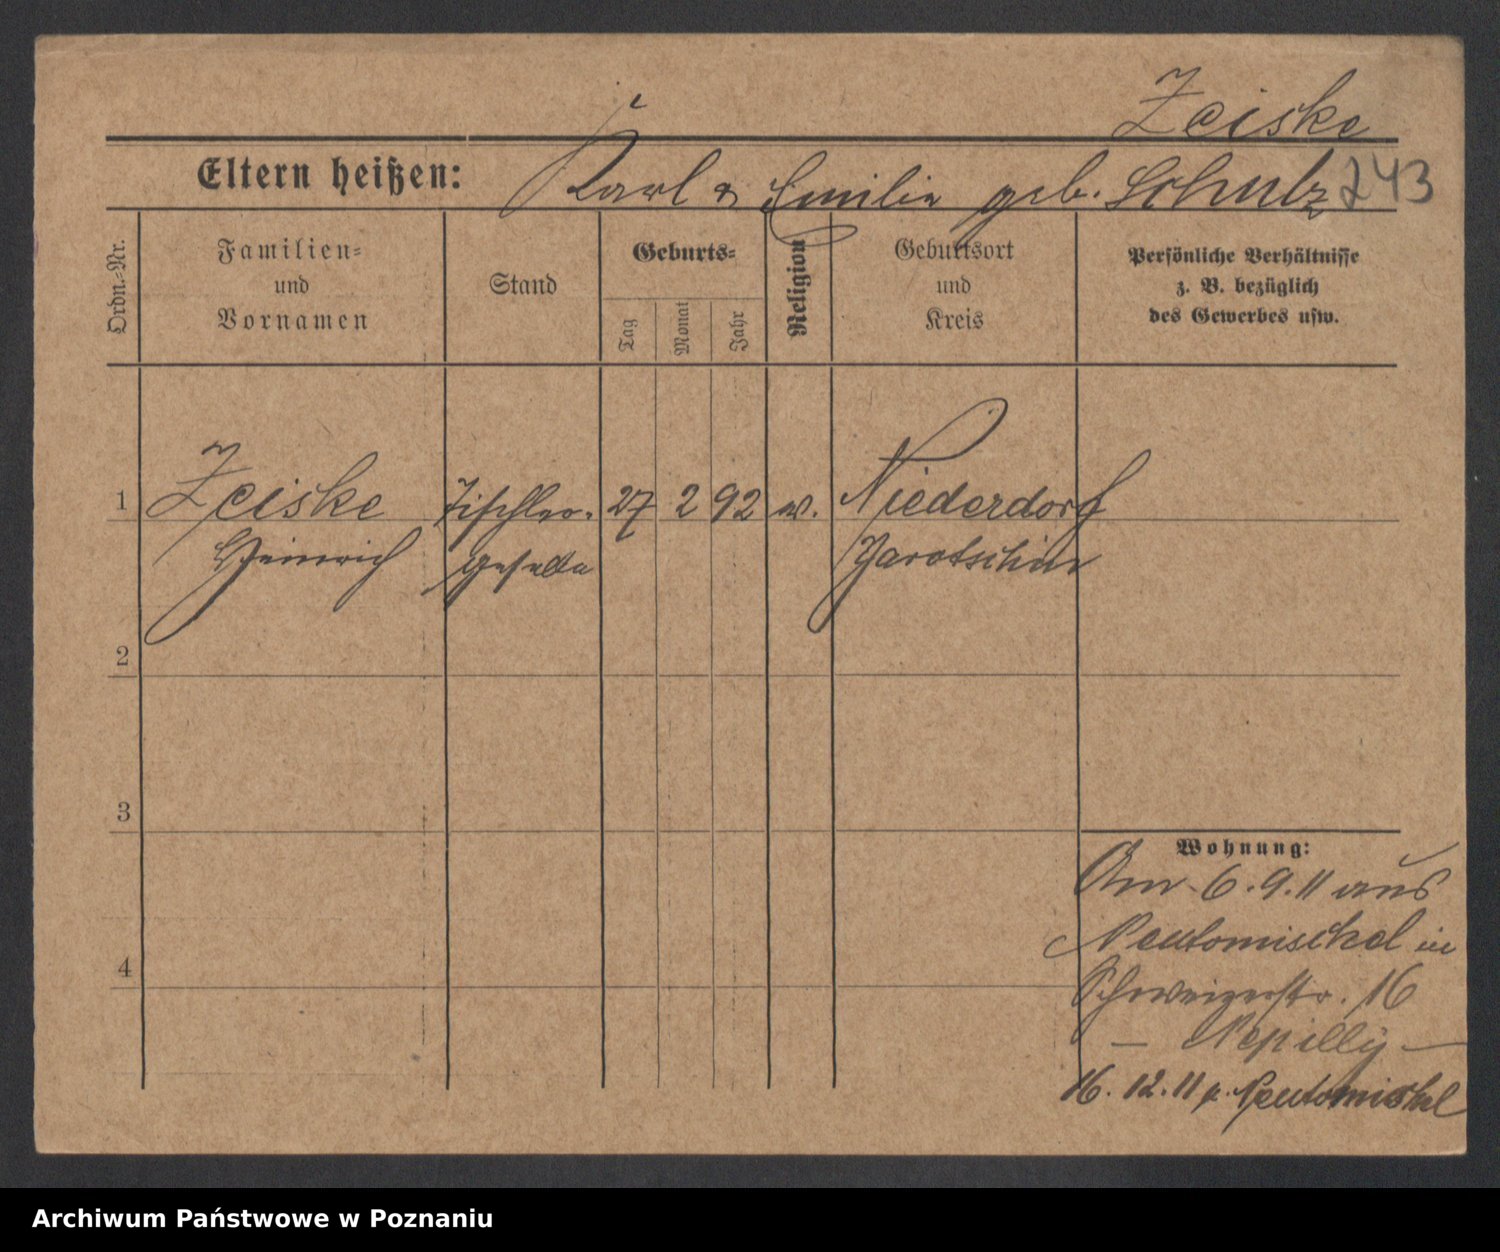 Zeiske
Eltern heißen: Karl & Emilie geb. Schulz 243
Ordn.-Nr.
Familien-
und
Vornamen
Stand
Geburts-
Tag
Monat
Jahr
Religion
Geburtsort
und
Kreis
Persönliche Verhältnisse
z. B. bezüglich
des Gewerbes usw.
1 Zeiske Tischler- 27 2 92 Niederdorf
Heinrich geselle Jarotschin
2
3
4
Wohnung:
Am 6.9.11 aus
Neutomischel in
Schweizerstr. 16
— —
16.12.11 n. Neutomischel
Archiwum Państwowe w Poznaniu